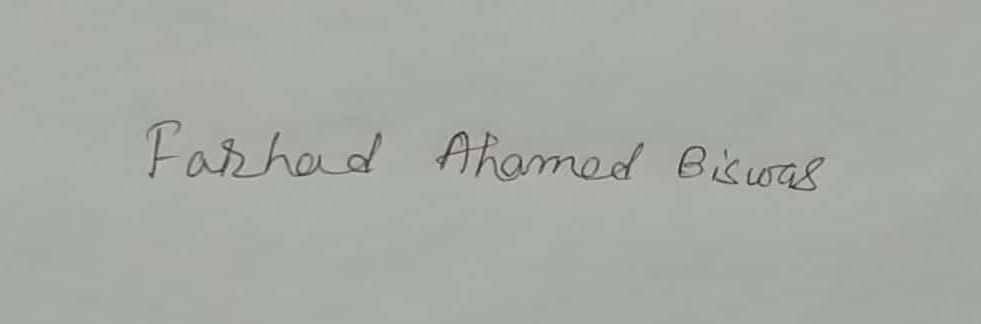 Farhad Ahamed Biswas